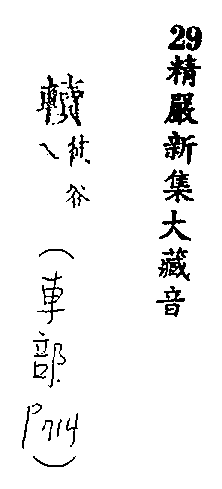 29精嚴新集大藏音
谷
（車部P714）